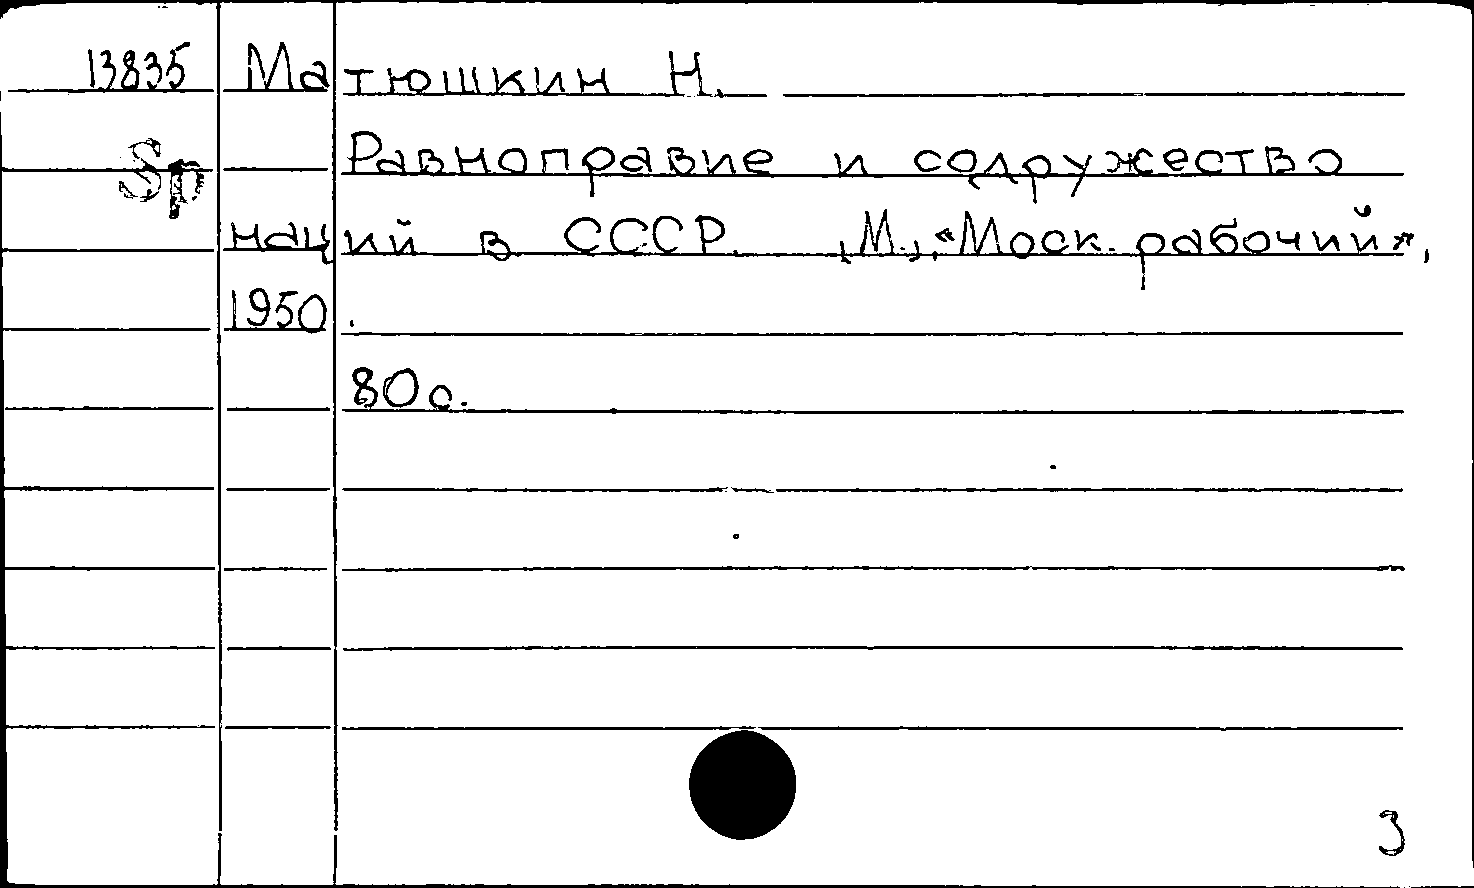 13835 Матюшкин Н.
Sp Равноправие и содружество
наций в СССР. „М.„ «Моск. рабочий»,
1950.
80 с.
3